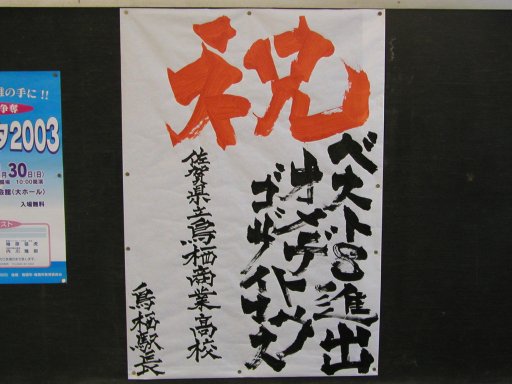 祝
ベスト8進出
オメデトウ
ゴザイマス
佐賀県立鳥栖商業高校
鳥栖駅長
の手に!!
争奪
2003
30日(日)
10:00開演
館(大ホール)
入場無料